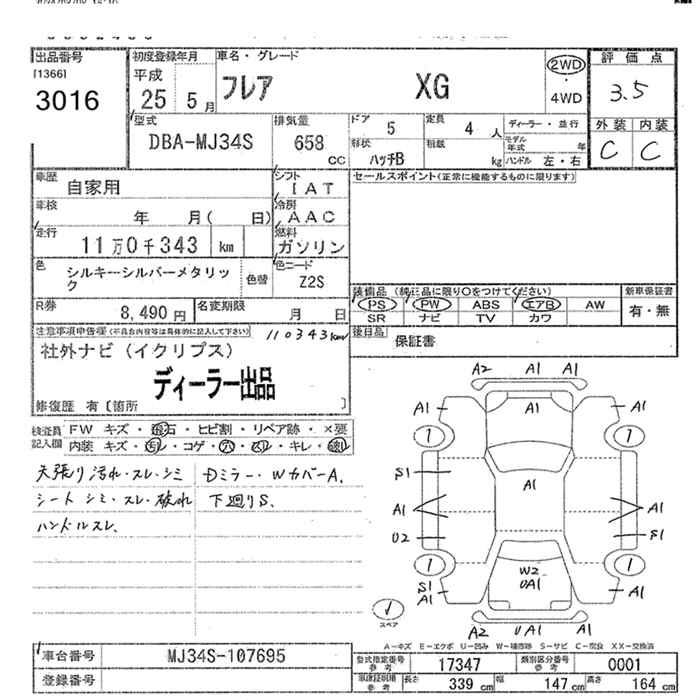 出品番号
[1366]
3016
初度登録年月
平成
25 5月
車名・グレード
フレア XG
2WD
・
4WD
評価点
3.5
外装 内装
C C
型式
DBA-MJ34S
排気量
658
CC
ドア
5
定員
4 人
形状
ハッチB
積載
kg
ディーラー・並行
モデル年式 年
ハンドル 左・右
車歴
自家用
シフト
IAT
車検
年 月( 日)
冷房
AAC
走行
11万0千343 km
燃料
ガソリン
色
シルキーシルバーメタリック
色替
色コード
Z2S
R券
8,490円
名変期限
月 日
セールスポイント(正常に機能するものに限ります)
装備品 (純正品に限り○をつけてください)
新車保証書
PS PW ABS エアB AW
SR ナビ TV カワ
有・無
後日品
保証書
注意事項申告欄(不具合内容等は具体的に記入して下さい)
110343km
社外ナビ(イクリプス)
ディーラー出品
修復歴 有〔箇所 〕
検査員記入欄
FW キズ・飛石・ヒビ割・リペア跡・×要
内装 キズ・・コゲ・穴・・キレ・
天張り汚れ・スレ・シミ
シート シミ・スレ・破れ
ハンドルスレ、
Dミラー・WカバーA、
下廻りS、
A2 A1 A1
A1 A1
1 1
S1
A1
A1 A1
U2 S1
1 1
S1
A1 A1
W2
UA1
A2 UA1 A1
スペア
A-キズ E-エクボ U-凹み W-補修跡 S-サビ C-腐食 XX-交換済
車台番号
MJ34S-107695
登録番号
型式指定番号
参考
17347
類別区分番号
参考
0001
車庫証明用
参考
長さ
339 cm
幅
147 cm
高さ
164 cm